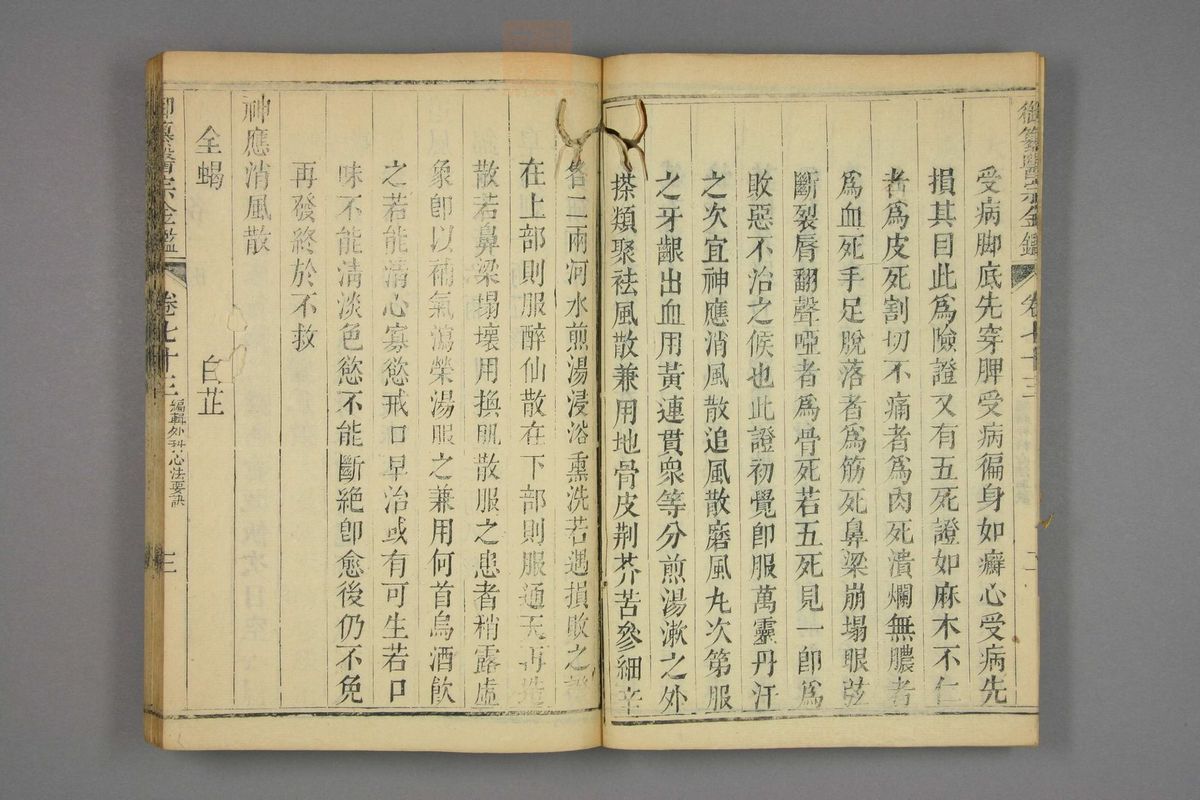 御纂醫宗金鑑 卷七十三 二
受病脚底先穿脾受病徧身如癬心受病先
損其目此爲險證又有五死證如麻木不仁
者爲皮死割切不痛者爲肉死潰爛無膿者
爲血死手足脫落者爲筋死鼻梁崩塌眼弦
斷裂唇翻聲啞者爲骨死若五死見一卽爲
敗惡不治之候也此證初覺卽服萬靈丹汗
之次宜神應消風散追風散磨風丸次第服
之牙齦出血用黃連貫衆等分煎湯漱之外
搽類聚祛風散兼用地骨皮荆芥苦參細辛
各二兩河水煎湯浸浴熏洗若遇損敗之證
在上部則服醉仙散在下部則服通天再造
散若鼻梁塌壞用換肌散服之患者稍露虛
象卽以補氣瀉榮湯服之兼用何首烏酒飲
之若能清心寡慾戒口早治或有可生若口
味不能清淡色慾不能斷絕卽愈後仍不免
再發終於不救
神應消風散
全蝎 白芷
御纂醫宗金鑑 卷七十三 編輯外科心法要訣 三